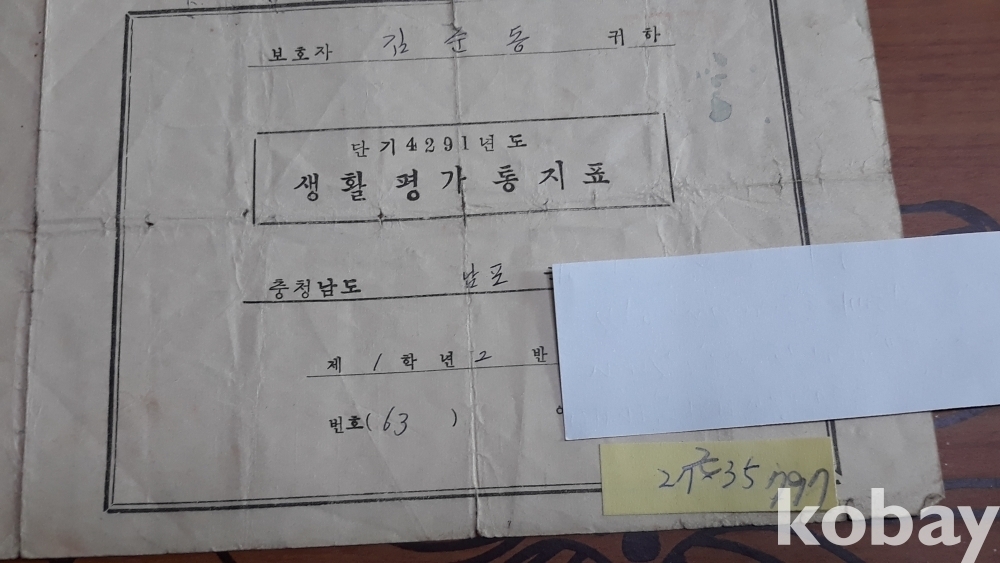 보호자 김준동 귀하
단기4291년도
생활평가통지표
충청남도 남포
제 1 학년 2 반
번호(63)
kobay